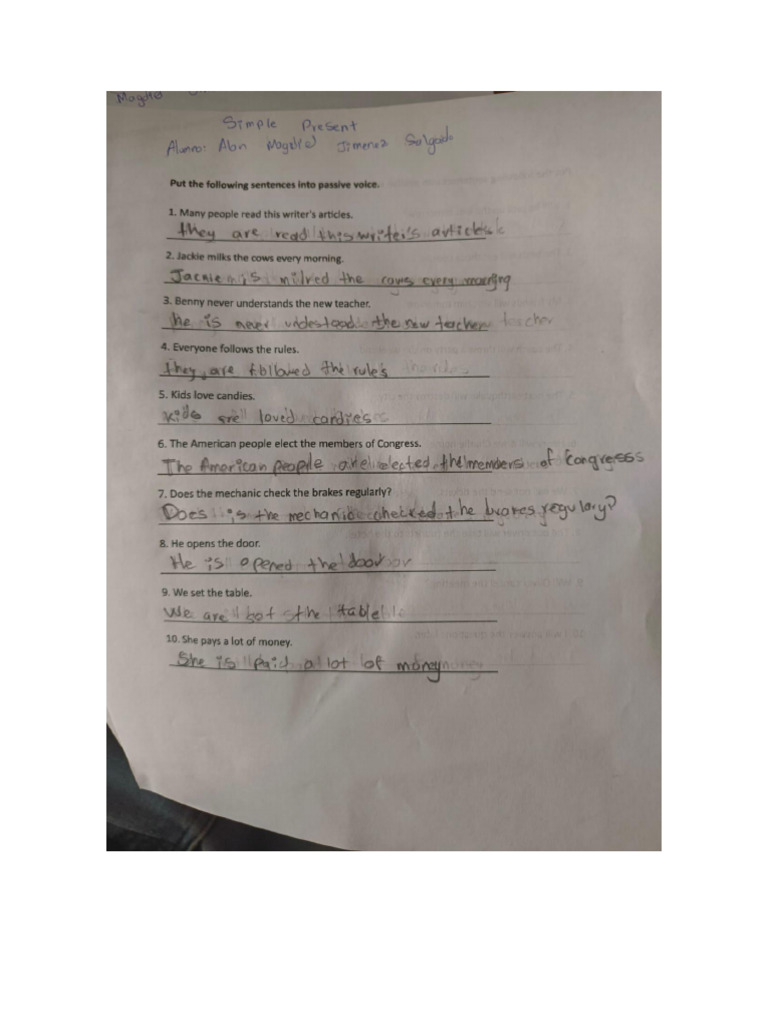 Magdiel
Simple Present
Alumno: Abn Magdiel Jimenez Salgado
Put the following sentences into passive voice.
1. Many people read this writer's articles.
they are read this writer's articles
2. Jackie milks the cows every morning.
Jackie is milked the cows every morning
3. Benny never understands the new teacher.
he is never undestood the new teacher
4. Everyone follows the rules.
They are followed the rules
5. Kids love candies.
Kids are loved candies
6. The American people elect the members of Congress.
The American people are elected the members of Congress
7. Does the mechanic check the brakes regularly?
Does is the mechanic checked the brakes regulary?
8. He opens the door.
He is opened the door
9. We set the table.
We are the table
10. She pays a lot of money.
She is paid a lot of money